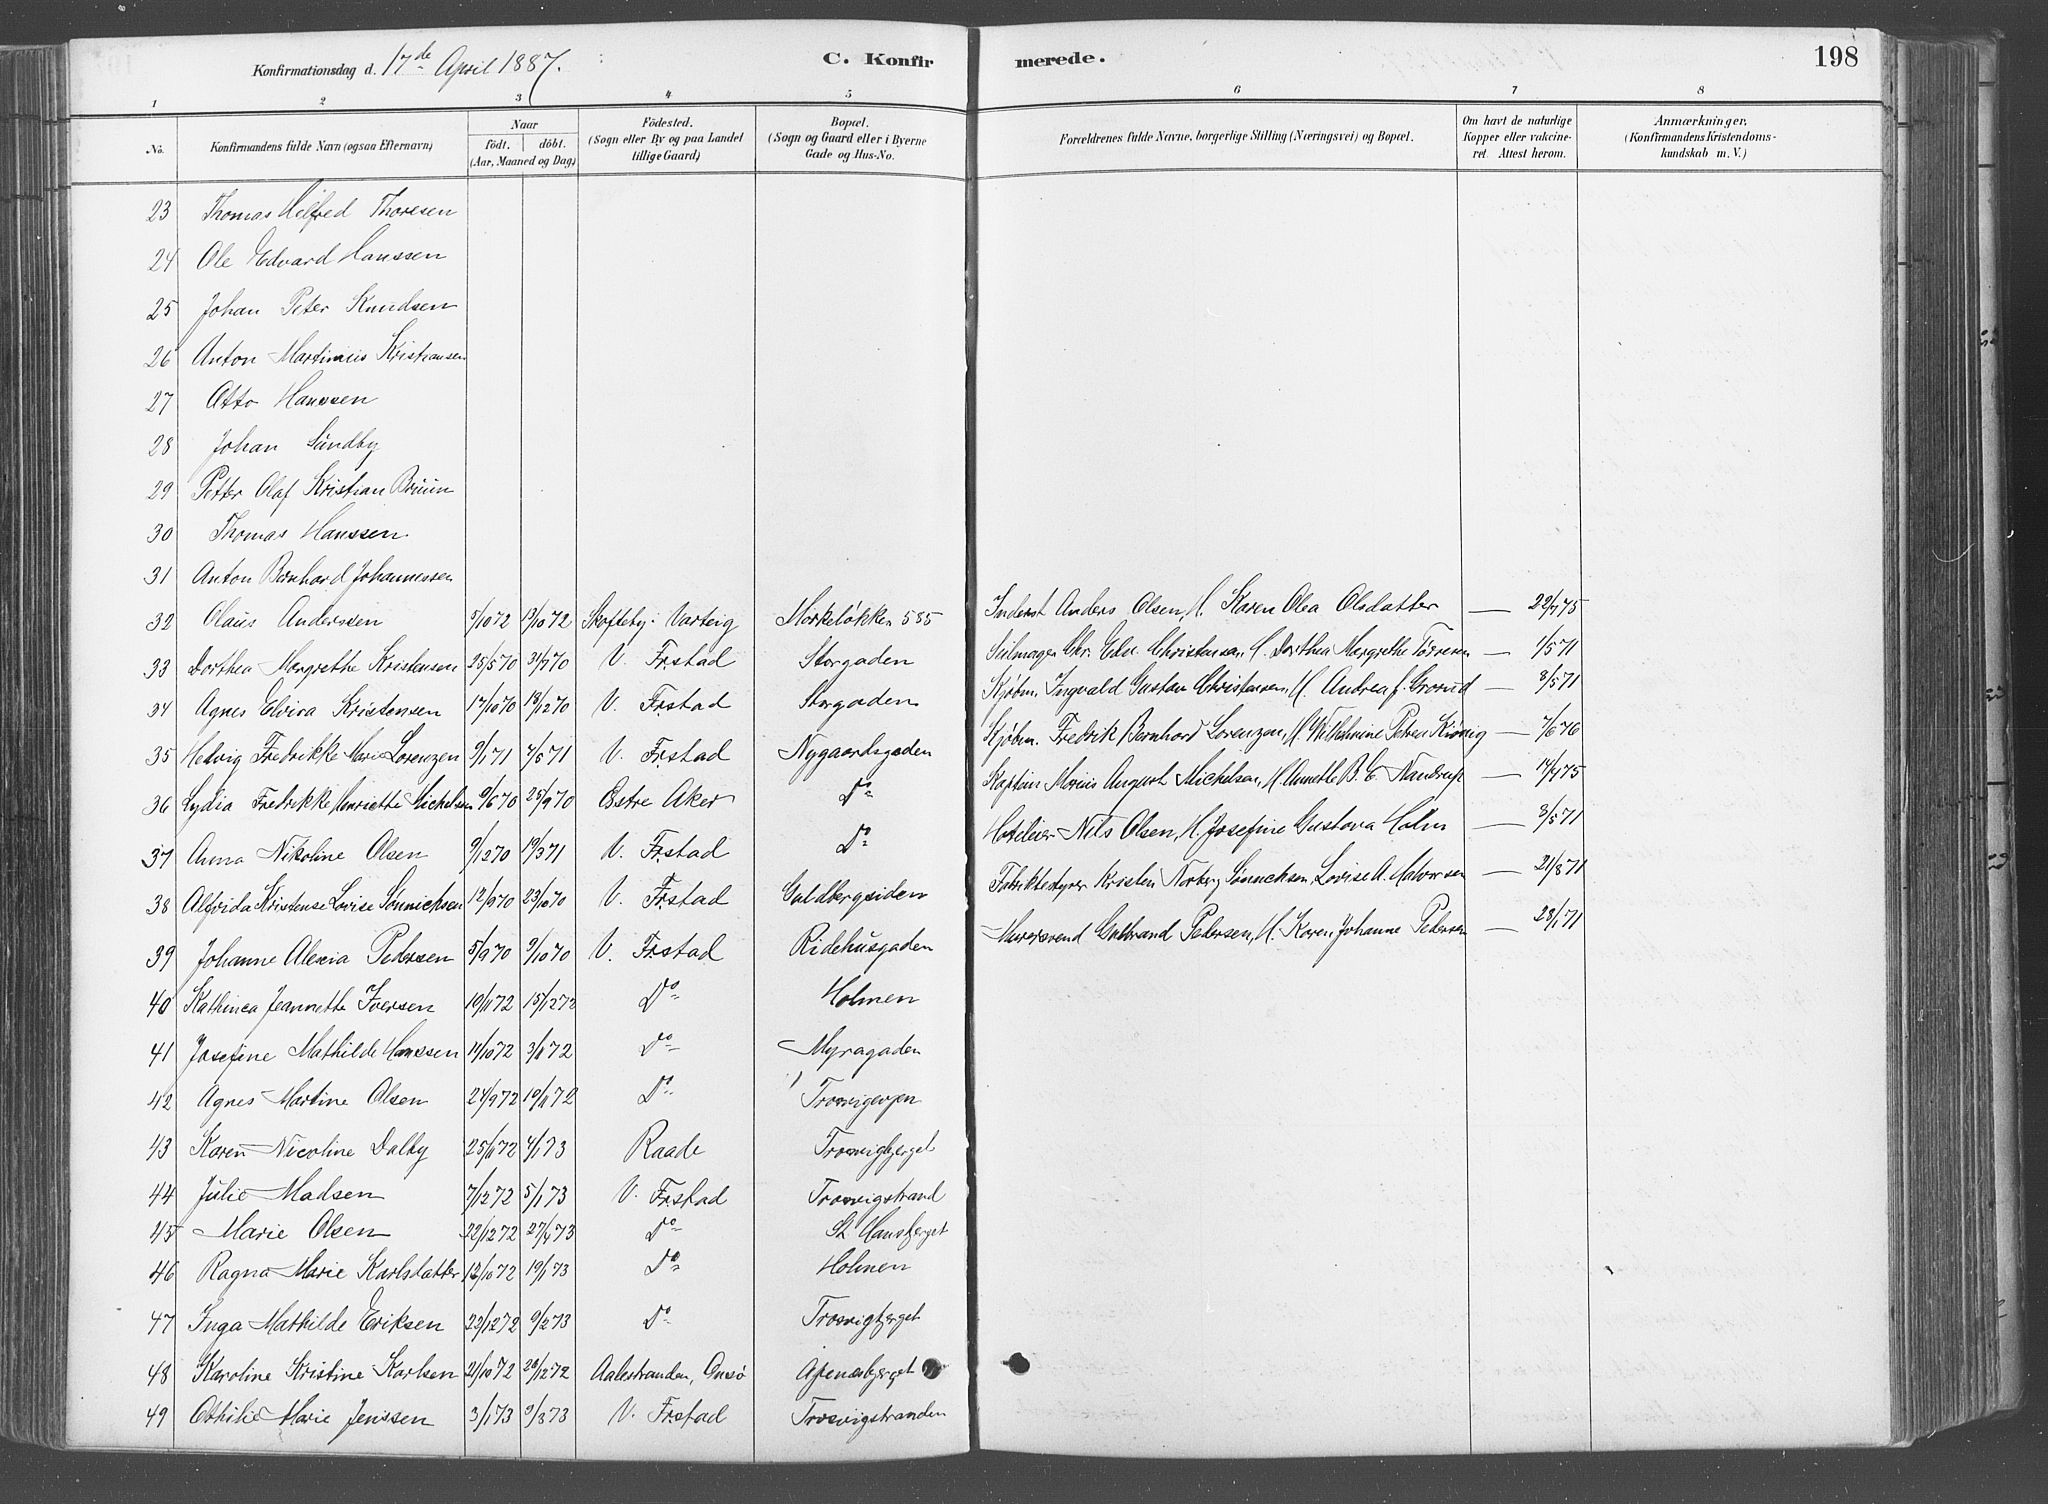 Konfirmationsdag d. 17de April 1887.
C. Konfirmerede.
198
1 2 3 4 5 6 7 8
No.
Konfirmandens fulde Navn (ogsaa Efternavn)
Naar
födt. döbt.
(Aar, Maaned og Dag)
Födested.
(Sogn eller By og paa Landet
tillige Gaard)
Bopæl.
(Sogn og Gaard eller i Byerne
Gade og Hus-No.
Forældrenes fulde Navne, borgerlige Stilling (Næringsvei) og Bopæl.
Om havt de naturlige
Kopper eller vakcine-
ret. Attest herom.
Anmærkninger,
(Konfirmandens Kristendoms-
kundskab m. V.)
23 Thomas Hilfred Thoresen
24 Ole Edvard Hanssen
25 Johan Peter Knudsen
26 Anton Martinius Kristiansen
27 Otto Hanssen
28 Johan Sundby
29 Petter Olaf Kristian Bruun
30 Thomas Hanssen
31 Anton Bernhard Johannessen
32 Olaus Anderssen 5/10 72 13/10 72 Skofteby. Varteig Mørkeløkken 585 Inderst Anders Olsen, H. Karen Olea Olsdatter — 22/7 75
33 Dorthea Margrethe Kristensen 25/5 70 31/7 70 V. Frstad Storgaden Seilmager Chr. Edv. Christensen, H. Dorthea Margrethe Törresen — 1/5 71
34 Agnes Elvira Kristensen 17/10 70 18/12 70 V. Frstad Storgaden Kjøbm. Ingvald Gustav Christensen, H. Andrea J. Grorud — 3/5 71
35 Hedvig Fredrikke Marie Lorenzen 9/1 71 7/5 71 V. Frstad Nygaardsgaden Kjøbm. Fredrik Bernhard Lorenzen, H. Wilhelmine Petrea — 7/6 76
36 Lydia Fredrikke Henriette Michelsen 9/6 70 25/9 70 Østre Aker Do Kaptein Marius August Michelsen, H. Annette B. C. — 14/7 75
37 Anna Nikoline Olsen 9/12 70 19/3 71 V. Frstad Do Hotelier Nils Olsen, H. Josefine Gustava Holm — 3/5 71
38 Alfrida Kristense Lovise Sönnichsen 12/9 70 23/10 70 V. Frstad Guldbergsiden Fabrikbestyrer Kristen Norberg Sönnichsen, Lovise A. Halvorsen — 21/8 71
39 Johanne Alexia Pedersen 5/9 70 9/10 70 V. Frstad Ridehusgaden Murersvend Gulbrand Pedersen, H. Karen Johanne Pedersen — 23/1 71
40 Kathinca Jeannette Iversen 10/11 72 15/12 72 Do Holmen
41 Josefine Mathilde Hanssen 14/10 72 3/11 72 Do Myragaden
42 Agnes Martine Olsen 24/9 72 10/11 72 Do Trosvigevjen
43 Karen Nicoline Dalby 25/11 72 4/1 73 Raade Trosvigbjerget
44 Julie Madsen 7/12 72 5/1 73 V. Frstad Trosvigstrand
45 Marie Olsen 22/12 72 27/4 73 Do St. Hansbjerget
46 Ragna Marie Karlsdatter 12/10 72 19/1 73 Do Holmen
47 Inga Mathilde Eriksen 22/12 72 9/2 73 Do Trosvigbjerget
48 Karoline Kristine Karlsen 21/10 72 26/12 72 Aalestranden, Onsø Apenæsbjerget
49 Othilie Marie Jenssen 3/1 73 9/3 73 V. Frstad Trosvigstranden